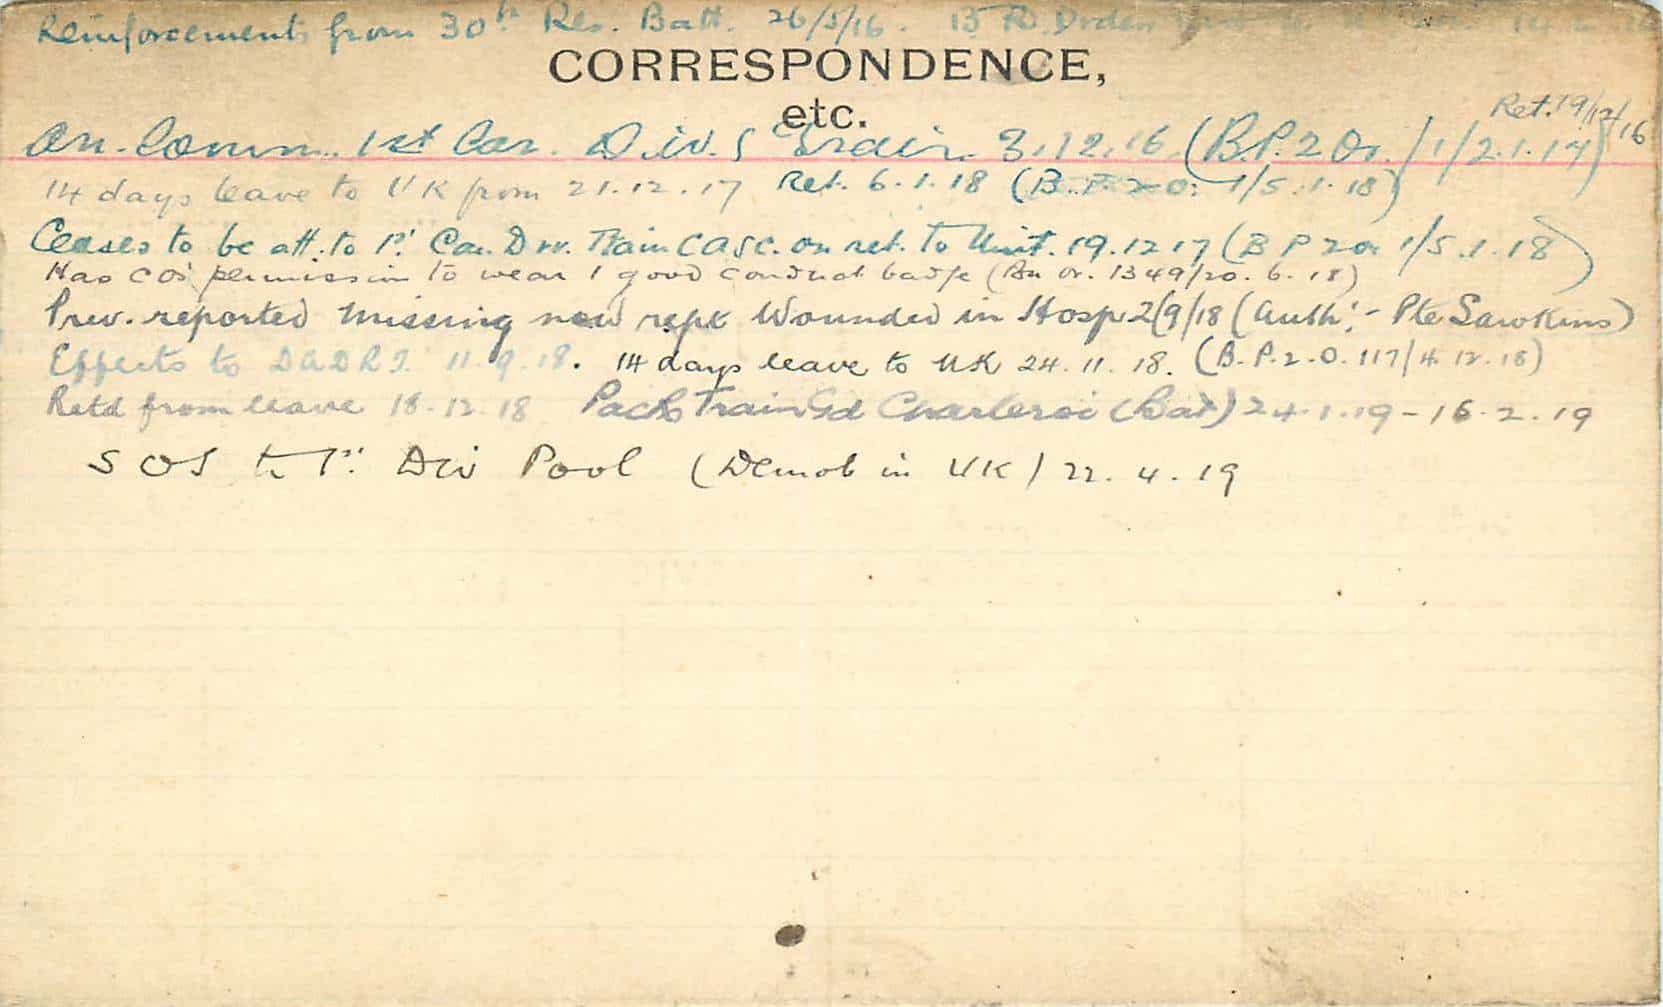 Reinforcements from 30th Res. Batt. 26/5/16. B Pt. Orders
CORRESPONDENCE,
etc.
Ret. 19/12/16
On. Comm. 1st Can. Div. S Train. 3.12.16 (B.P.2 Or. /1/2.1.17)
14 days leave to UK from 21.12.17 Ret. 6.1.18 (B.P.2 O. 1/5.1.18)
Ceases to be att. to 1st Can. Div. Train CASC. on ret. to Unit. 19.12 17 (B P 2 or 1/5.1.18)
Has COs' permission to wear 1 good conduct badge (Bn or. 1349/20.6.18)
Prev. reported Missing now rept Wounded in Hosp 2/9/18 (Auth:- Pte Sawkins)
Effects to DADRT. 11.9.18. 14 days leave to UK 24.11.18. (B.P.2.O. 117/4.12.18)
Retd from leave 18.12.18 Pack Train Gd Charleroi (Bat) 24.1.19 - 16.2.19
S OS to 1st Div Pool (Demob in UK) 22.4.19